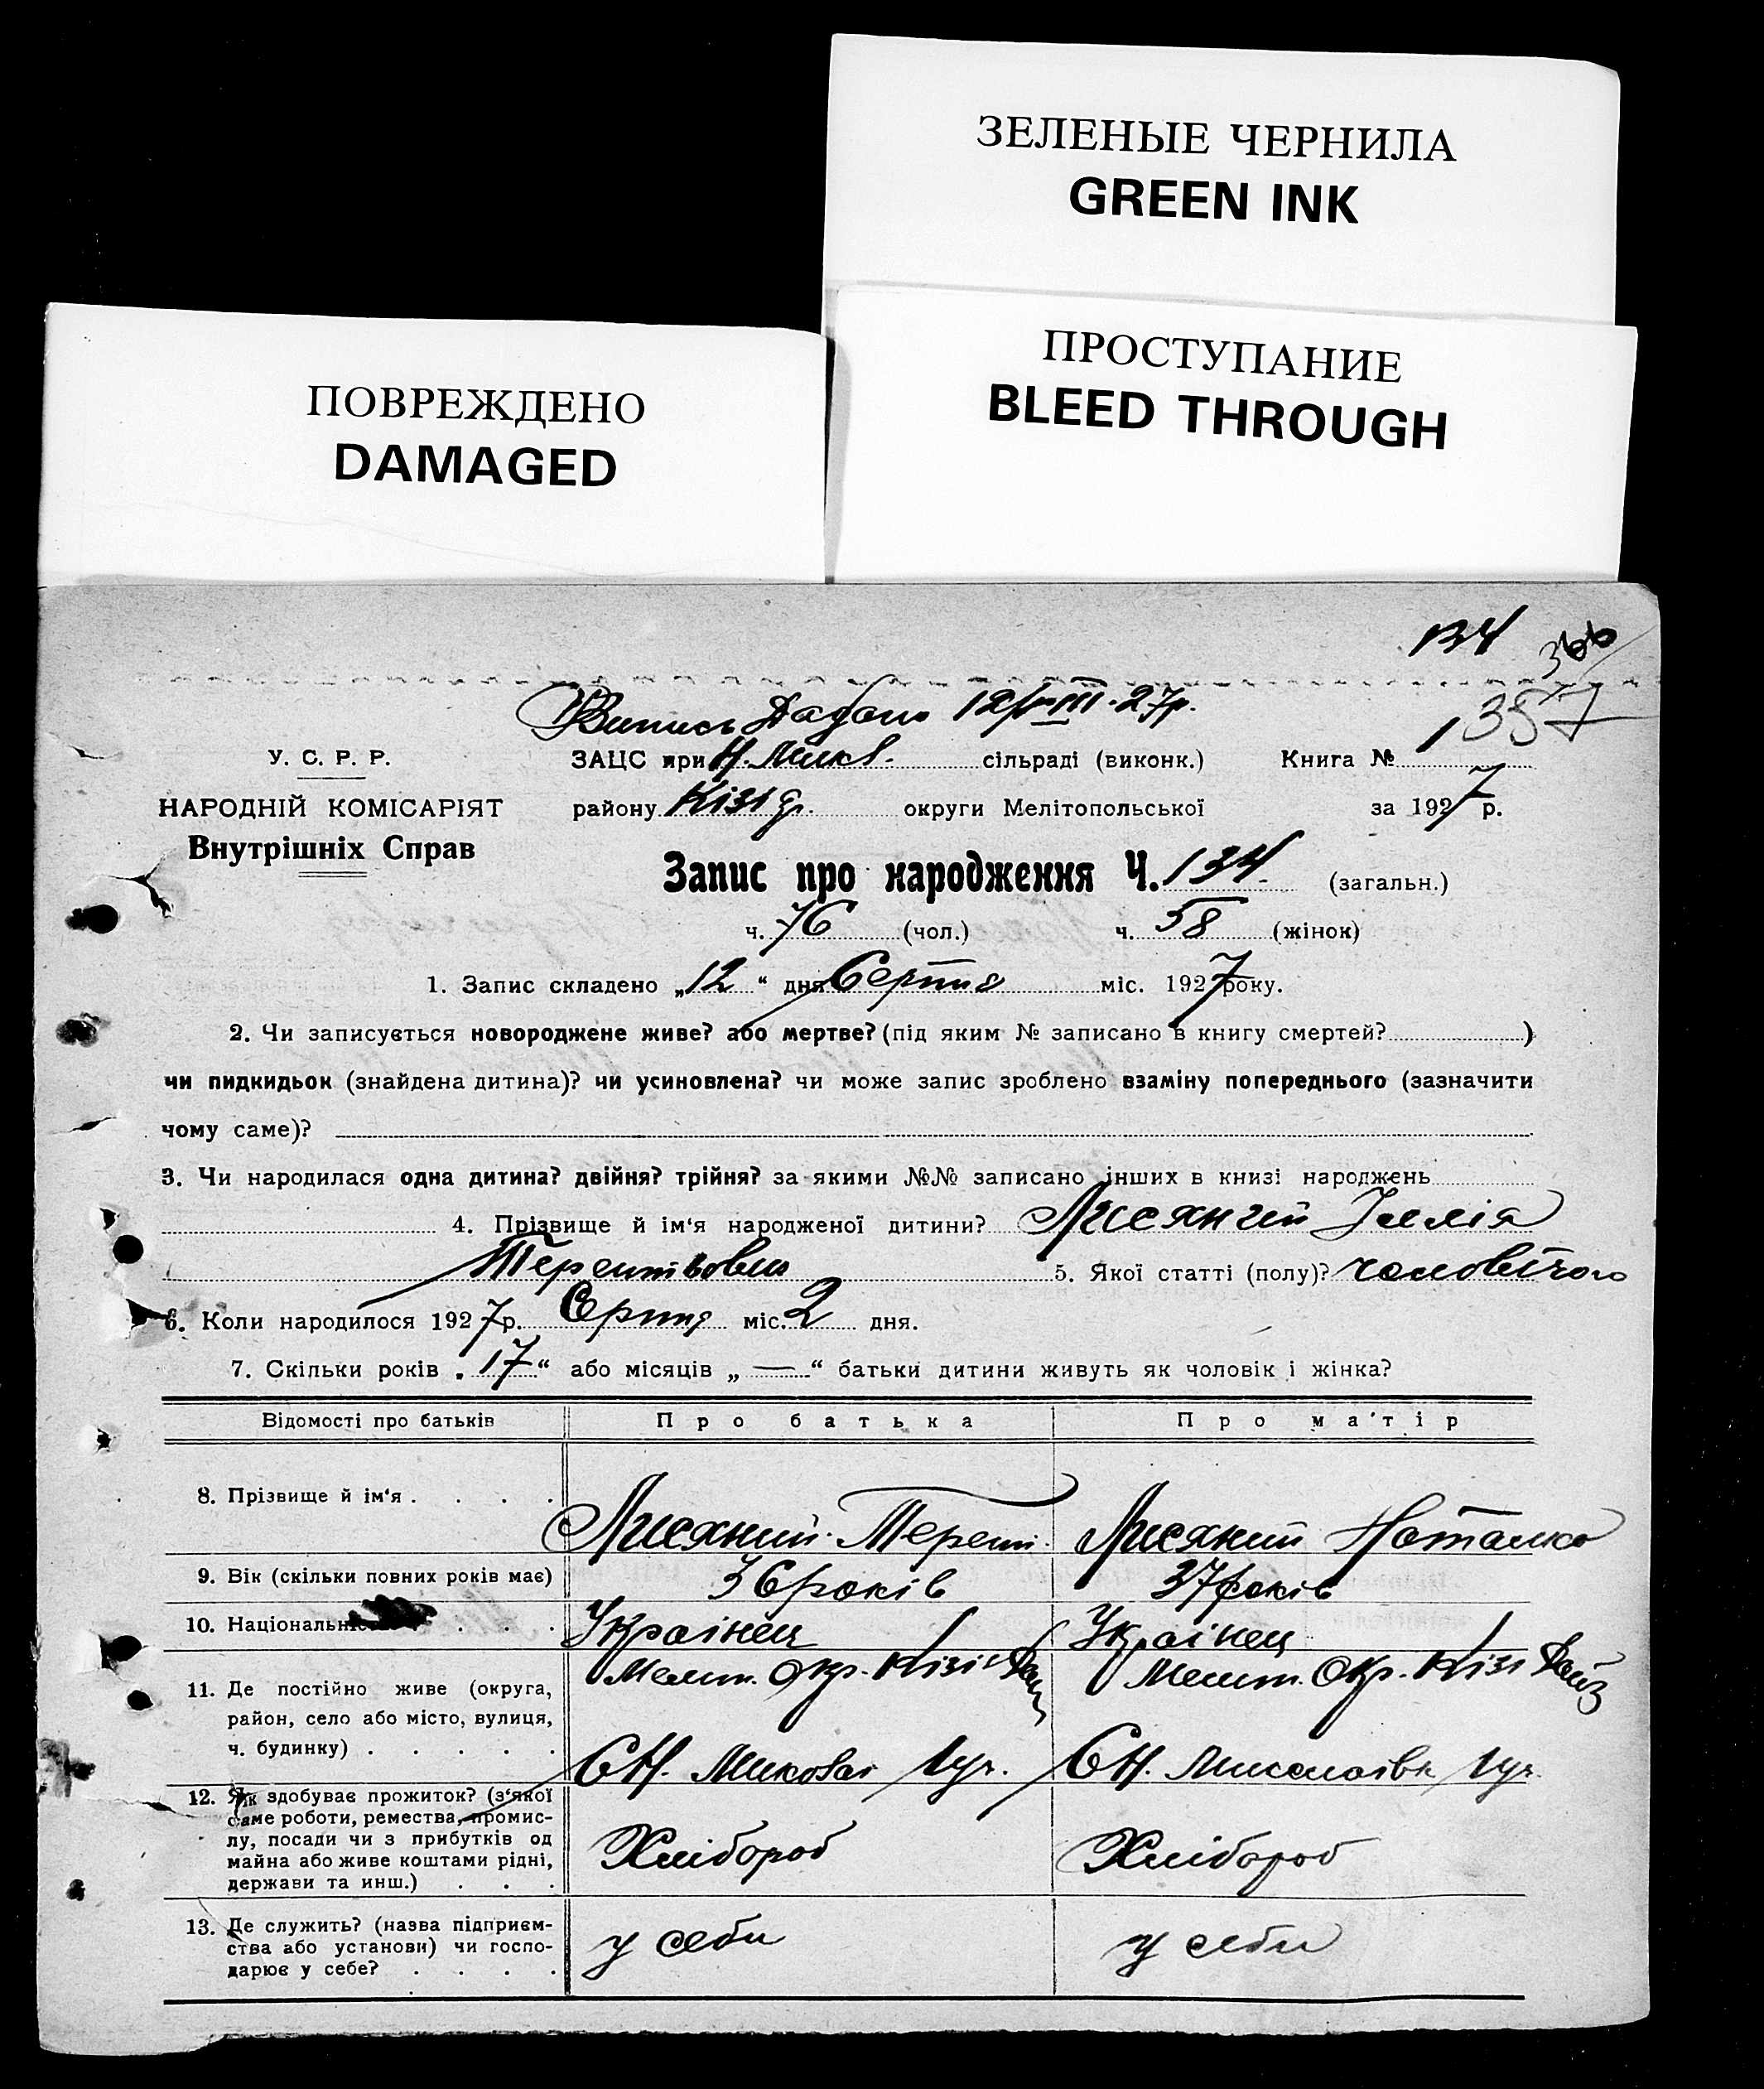 ЗЕЛЕНЫЕ ЧЕРНИЛА
GREEN INK
ПРОСТУПАНИЕ
BLEED THROUGH
ПОВРЕЖДЕНО
DAMAGED
134 366
357
Випись 12/VIII-27р.
У. С. Р. Р. ЗАЦС при Н. Микл. сільраді (виконк.) Книга № 1
НАРОДНІЙ КОМІСАРІЯТ району округи Мелітопольської за 1927 р.
Внутрішніх Справ
Запис про народження Ч. 134 (загальн.)
ч. 76 (чол.) ч. 58 (жінок)
1. Запис складено „12“ дня Серпня міс. 1927 року.
2. Чи записується новороджене живе? або мертве? (під яким № записано в книгу смертей? )
чи пидкидьок (знайдена дитина)? чи усиновлена? чи може запис зроблено взаміну попереднього (зазначити
чому саме)?
3. Чи народилася одна дитина? двійня? трійня? за якими №№ записано інших в книзі народжень
4. Прізвище й ім‘я народженої дитини? Ілля
5. Якої статті (полу)? чоловічого
6. Коли народилося 1927 р. Серпня міс. 2 дня.
7. Скільки років „17“ або місяців „—“ батьки дитини живуть як чоловік і жінка?
Відомості про батьків Про батька Про матір
8. Прізвище й ім‘я . . . . Лисяний Терент. Лисяний
9. Вік (скільки повних років має) 36 років 37 років
10. Національн . . . Українец Українец
11. Де постійно живе (округа, Меліт. Окр. Меліт. Окр.
район, село або місто, вулиця,
ч. будинку) . . . . . С Н. С Н. Миколаівк
12. Як здобуває прожиток? (з‘якої
саме роботи, ремества, промис-
лу, посади чи з прибутків од Хлібороб Хлібороб
майна або живе коштами рідні,
держави та инш.) . . .
13. Де служить? (назва підприєм-
ства або установи) чи госпо- у себи у себи
дарює у себе? . . . .